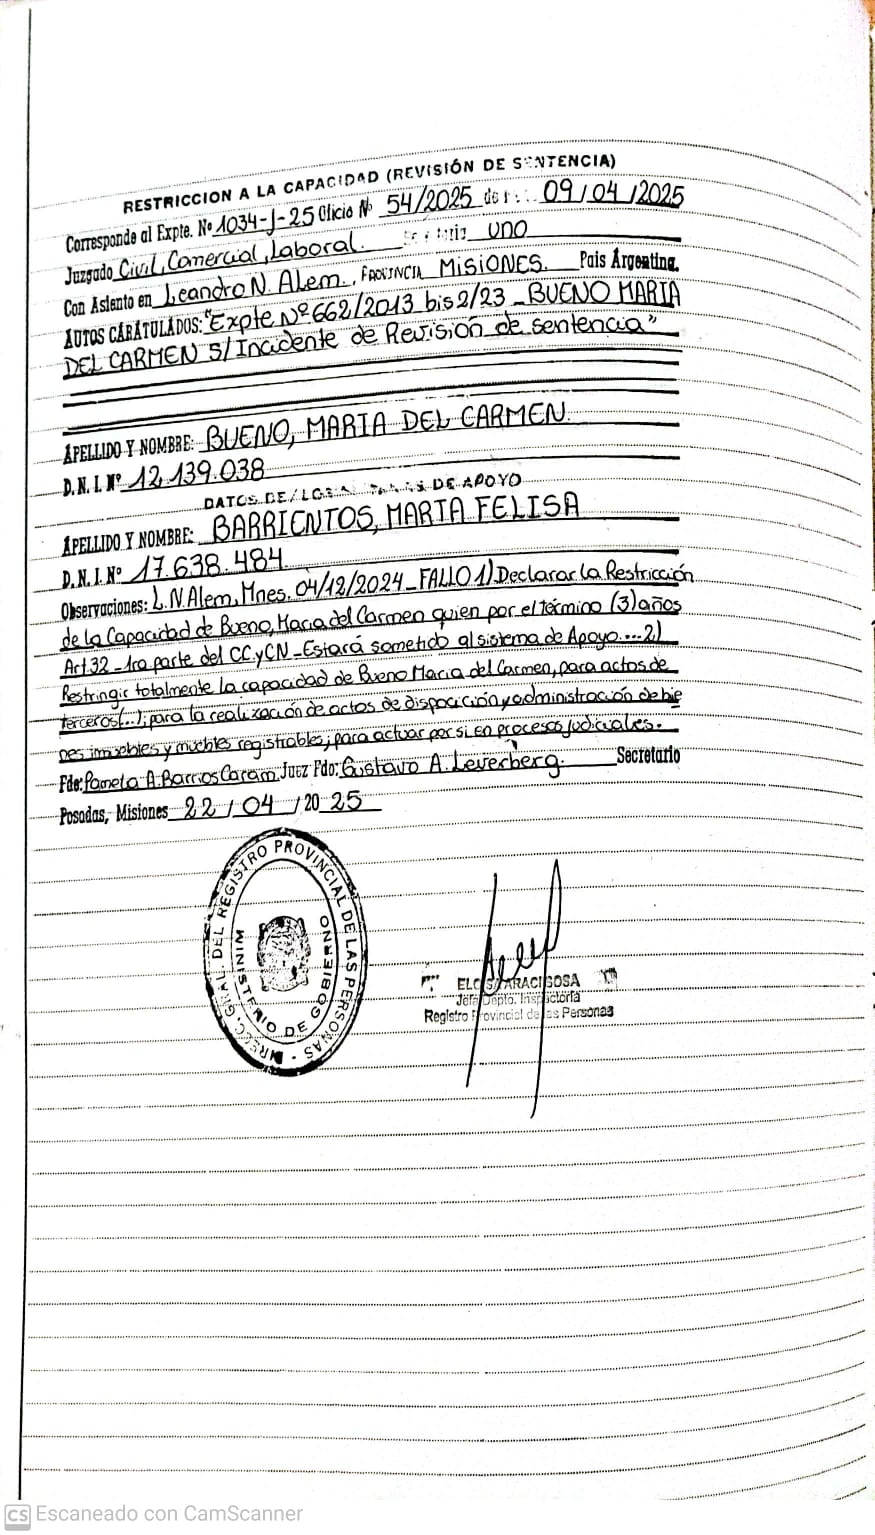 RESTRICCION A LA CAPACIDAD (REVISIÓN DE SENTENCIA)
Corresponde al Expte. Nº 1034-J-25 Oficio Nº 54/2025 de 09/04/2025
Juzgado Civil, Comercial, Laboral. uno
Con Asiento en Leandro N. Alem., PROVINCIA MISIONES. Pais Argentina.
AUTOS CARATULADOS: "Expte Nº 662/2013 bis 2/23 - BUENO MARIA
DEL CARMEN S/Incidente de Revisión de sentencia"
APELLIDO Y NOMBRE: BUENO, MARIA DEL CARMEN.
D.N.I. Nº 12.139.038
DATOS DE/LOS DE APOYO
APELLIDO Y NOMBRE: BARRIENTOS, MARTA FELISA
D.N.I. Nº 17.638.484
Observaciones: L.N.Alem, Mnes. 04/12/2024 - FALLO 1) Declarar la Restricción
de la Capacidad de Bueno, Maria del Carmen quien por el término (3) años
Art.32 - 1ra parte del CC.yCN - Estará sometido al sistema de Apoyo....2)
Restringir totalmente la capacidad de Bueno Maria del Carmen, para actos de
terceros(...); para la realización de actos de disposición y administración de bie
nes inmuebles y muebles registrables; para actuar por si en procesos judiciales.
Fdo: Pamela A. Barrios Caram Juez Fdo: Gustavo A. Leverberg. Secretario
Posadas, Misiones 22/04/2025
DIRECC. GRAL. DEL REGISTRO PROVINCIAL DE LAS PERSONAS
MINISTERIO DE GOBIERNO
Jefa Dpto. Inspectoría
Registro Provincial de las Personas
CS Escaneado con CamScanner